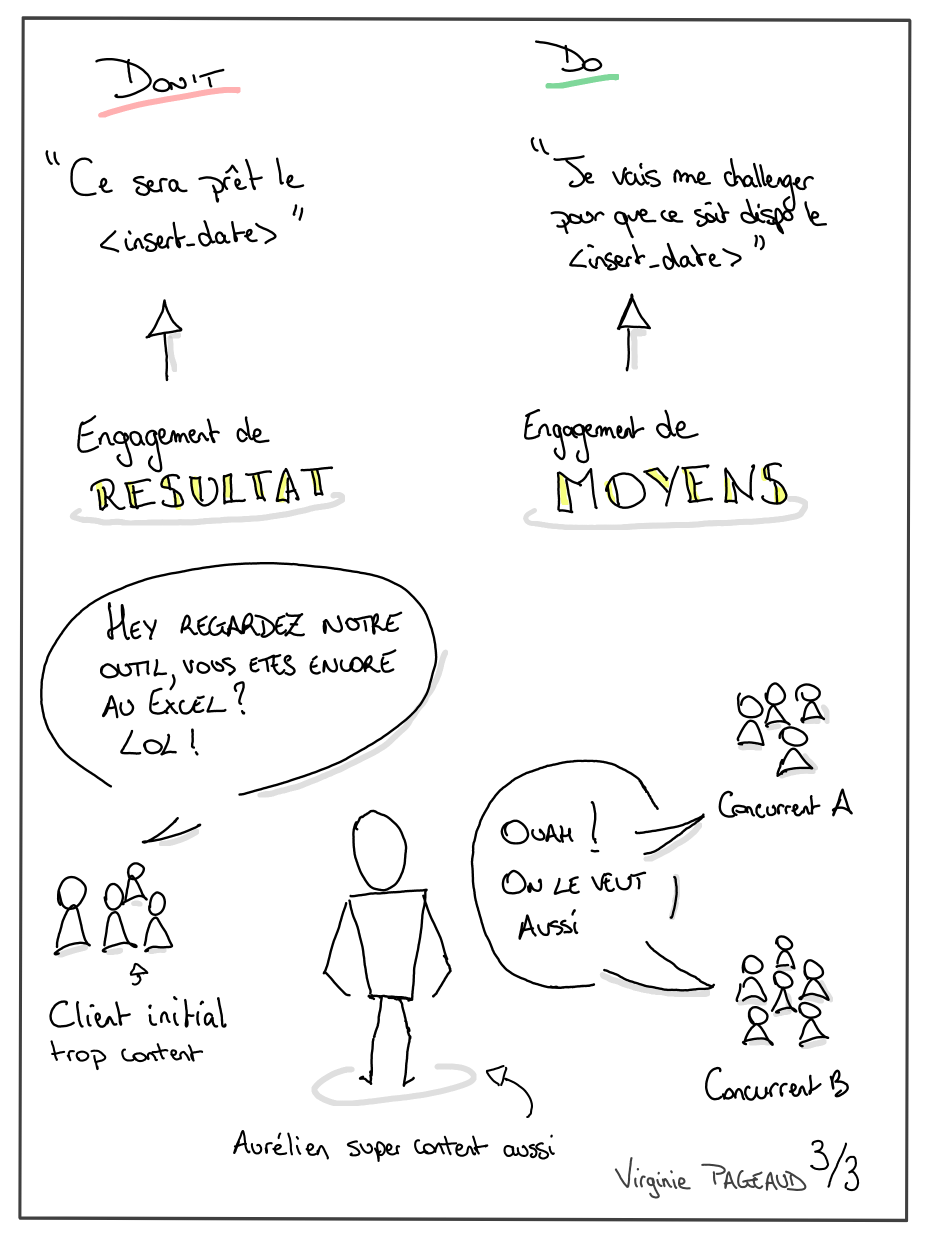 DON'T
DO
“Ce sera prêt le
<insert_date>”
“Je vais me challenger
pour que ce soit dispo le
<insert_date>”
Engagement de
RESULTAT
Engagement de
MOYENS
HEY REGARDEZ NOTRE
OUTIL, VOUS ETES ENCORE
AU EXCEL ?
LOL !
Concurrent A
OUAH !
ON LE VEUT
AUSSI
Client initial
trop content
Concurrent B
Aurélien super content aussi
Virginie PAGEAUD 3/3